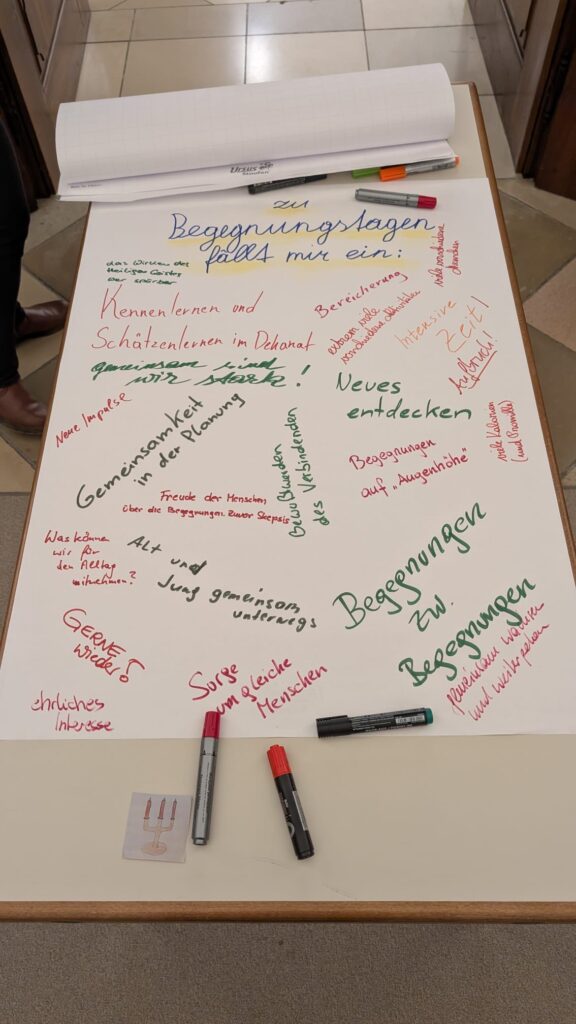 URSUS
Staufen
zu
Begegnungstagen
fällt mir ein:
das Wirken des
Heiligen Geistes
war spürbar
viele verschiedene
Kennenlernen und
Schätzenlernen im Dekanat
Bereicherung
extrem viele
verschiedene
Intensive
Zeit!
Aufbruch!
gemeinsam sind
wir stark!
Neues
entdecken
Neue Impulse
Gemeinsamkeit
in der Planung
Bewußtwerden
des Verbindenden
Begegnungen
auf „Augenhöhe"
viele Kalorien
(und Promille)
Freude der Menschen
über die Begegnungen. Zuvor Skepsis
Was können
wir für
den Alltag
mitnehmen?
Alt und
Jung gemeinsam
unterwegs
Begegnungen
zw.
Begegnungen
gemeinsam wachsen
und weitergeben
GERNE
wieder!
Sorge
um gleiche
Menschen
ehrliches
Interesse